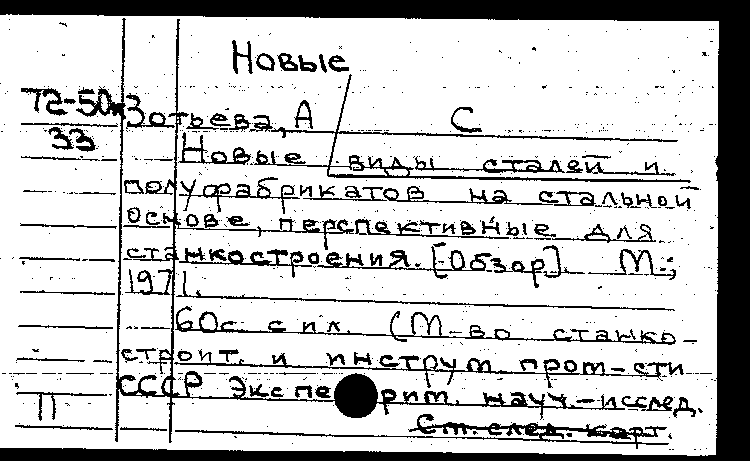 Новые
72-50к
33
Зотьева, А С
Новые виды сталей и
полуфабрикатов на стальной
основе, перспективные для
станкостроения. [Обзор]. М.,
1971.
60с. с ил. (М-во станко-
строит. и инструм. пром-сти
СССР Экспе рим. науч.-исслед.
11
См. след. карт.